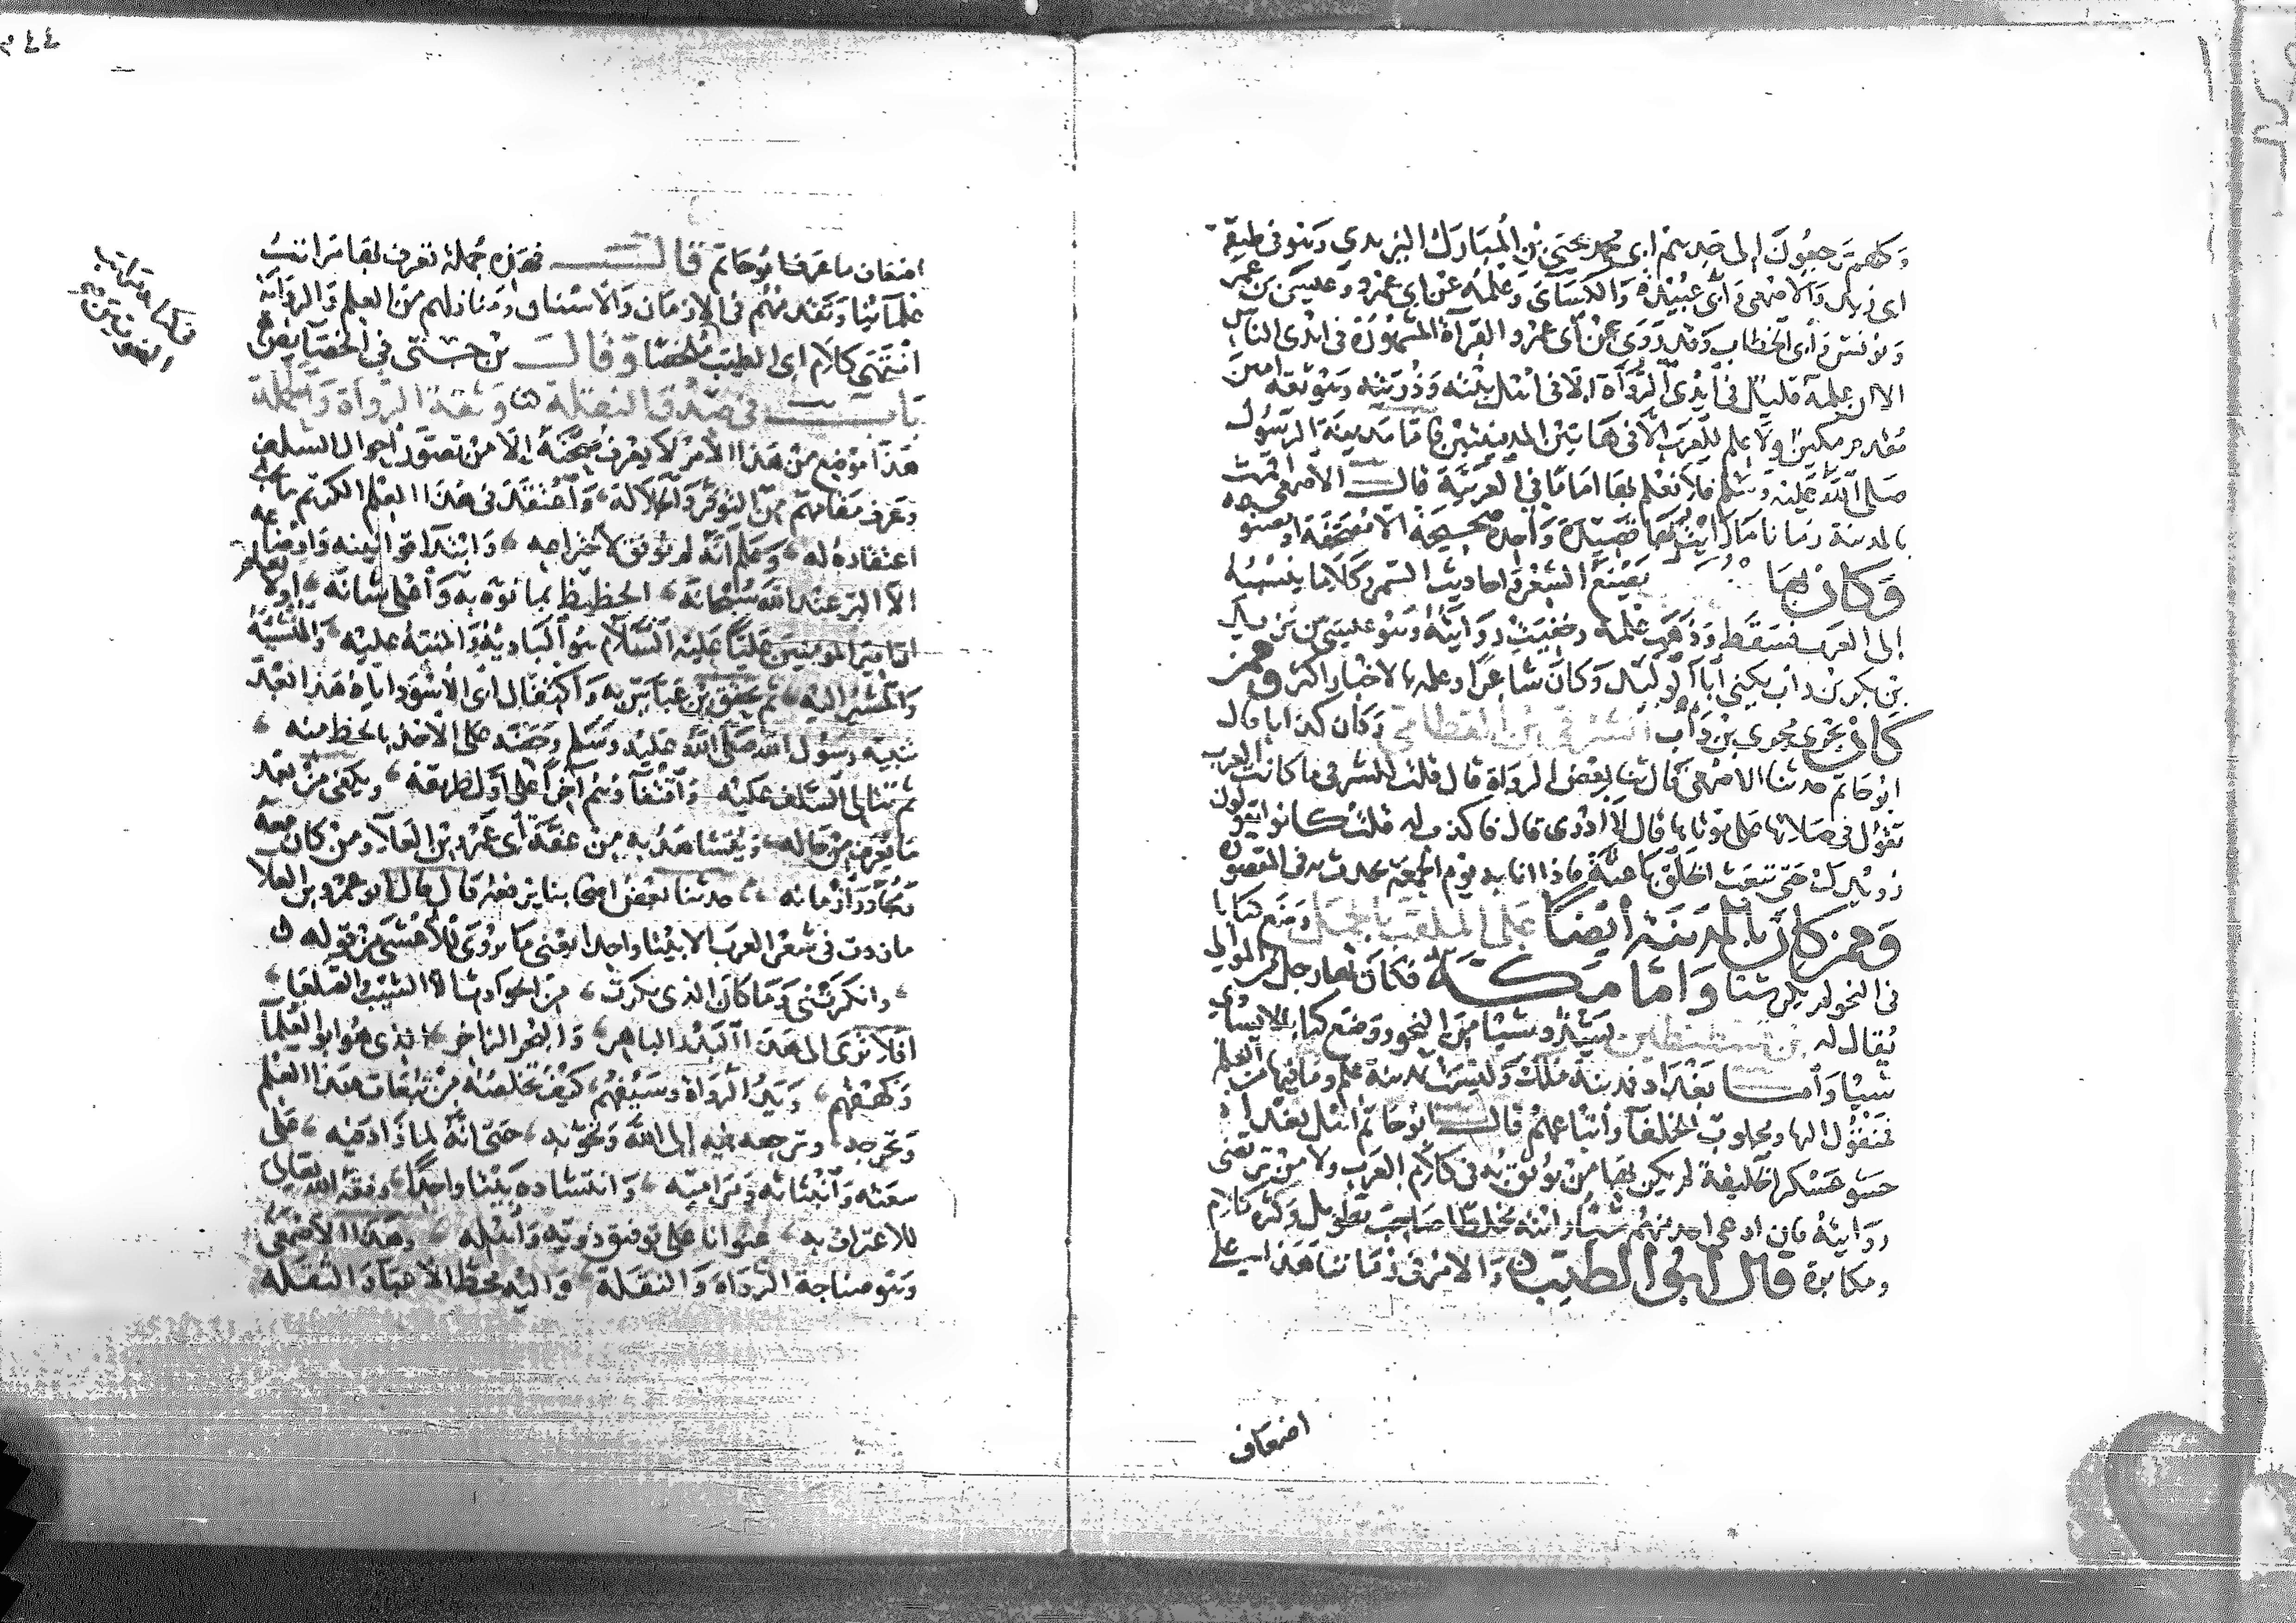 وكلهم يرجعون إلى جدهم ابى محمد يحيى بن المبارك اليزيدى وهو فى طبقة
ابى زيد والاصمعى وابى عبيدة والكسائى وعلمه عن ابى عمرو وعيسى بن عمر
ويونس وابى الخطاب وقد روى عن ابى عمرو القرآة المشهورة فى ايدى الناس
الا ان علمه قليل فى ايدى الرواة الا فى اهل بيته وذريته وهو ثقة امين
مقدم مكين ولا علم للعرب الا فى هاتين المدينتين فاما مدينة الرسول
صلى الله عليه وسلم فلا نعلم بها اماما فى العربية قال الاصمعى اقمت
بالمدينة زمانا ما رايت بها قصيدة واحدة صحيحة الا مصحفة او مصنوعه
وكان بها يصنع الشعر واحاديث السمر وكلاما ينسبه
إلى العرب فسقط وذهب علمه وخفيت روايته وهو عيسى بن يزيد
بن بكر بن داب يكنى ابا الوليد وكان شاعرا وعلمه بالاخبار اكثر وممن
كان يجرى مجرى بن داب الشرقى بن القطامى وكان كذابا قال
ابو حاتم حدثنا الاصمعى قال ثنا بعض الرواة قال قلت للشرقى ما كانت العرب
تقول فى صلاتها على موتاها قال لا ادرى قال فاكذب له قلت كانوا يقولون
رويدك حتى تبعث الخلق باعثه فاذا انا به يوم الجمعة يحدث به فى المقصورة
وممن كان بالمدينة أيضا على الملقب بالجمل وضع كتابا
فى النحو لم يكن شيئا واما مكة فكان بها رجل من الموالى
يقال له بن قسطنطين شدا شيئا من النحو ووضع كتابا لا يساوى
شيئا وأما بغداد فمدينة ملك وليست بمدينة علم وما فيها من العلم
فمنقول اليها ومجلوب للخلفا وأتباعهم قال ابو حاتم أهل بغداد
حشو عسكر الخليفة لم يكن بها من يوثق به فى كلام العرب ولا من ترتضى
روايته فان ادعى احد منهم شيئا رايته مخلطا صاحب تطويل وكثرة كلام
ومكابرة قال ابو الطيب والامر فى زماننا هذا على
اضعاف
اضعاف ما عرف ابو حاتم قال فهذه جملة تعرف بها مراتب
علمائنا وتقدمهم فى الازمان والاسنان ومنازلهم من العلم والرواية
انتهى كلام ابى الطيب ملخصا وقال بن جنى فى الخصايص
باب فى صدق النقلة وثقة الرواة والحملة
هذا موضع من هذا الامر لا يعرف صحته إلا من تصور احوال السلف
وعرف مقامهم من التوقر والجلالة واعتقد فى هذا العلم الكريم ما يجب
اعتقاده له وعلم انه لم يوفق لاختراعه وابتدا قوانينه واوضاعه
الا البر عند الله سبحانه الحظيظ بما نوه به واعلى شانه اولا يعلم
ان امير المومنين عليا عليه السلام هو البادىه والمنبه عليه والمنشيه
والمشير اليه ثم تحقق بن عباس به واكتفال ابى الاسود اياه هذا بعد
تنبيه رسول الله صلى الله عليه وسلم وحضه على الاخذ بالحظ منه
ثم تتالى السلف عليه واقتفاؤهم آخرا على اول طريقه ويكفى من بعد
ما يعرف من حاله ويتشاهد به من عفة أبى عمرو بن العلا ومن كان معه
ومجاورا زمانه حدثنا بعض اصحابنا يرفعه قال قال ابو عمرو بن العلا
ما زدت فى شعر العرب الا بيتا واحدا يعنى ما يروى للأعشى من قوله
وانكرتنى وما كان الذى نكرت من الحوادث الا الشيب والصلعا
افلا ترى الى هذا البدر الباهر والبحر الزاخر الذى هو ابو العلما
وكهفهم وبدؤ الرواة وسيفهم كيف تخلصه من تبعات هذا العلم
وتحرجه وتراجعه فيه إلى الله وتحوبه حتى انه لما زاد فيه على
سعته وانبثاثه وتراميه وانتشاره بيتا واحدا وفقه الله تعالى
للاعتراف به عنوانا على توفيق ذويه واهليه وهذا الاصمعى
وهو صناجة الرواة والنقلة واليه محط الاعباء والثقلة